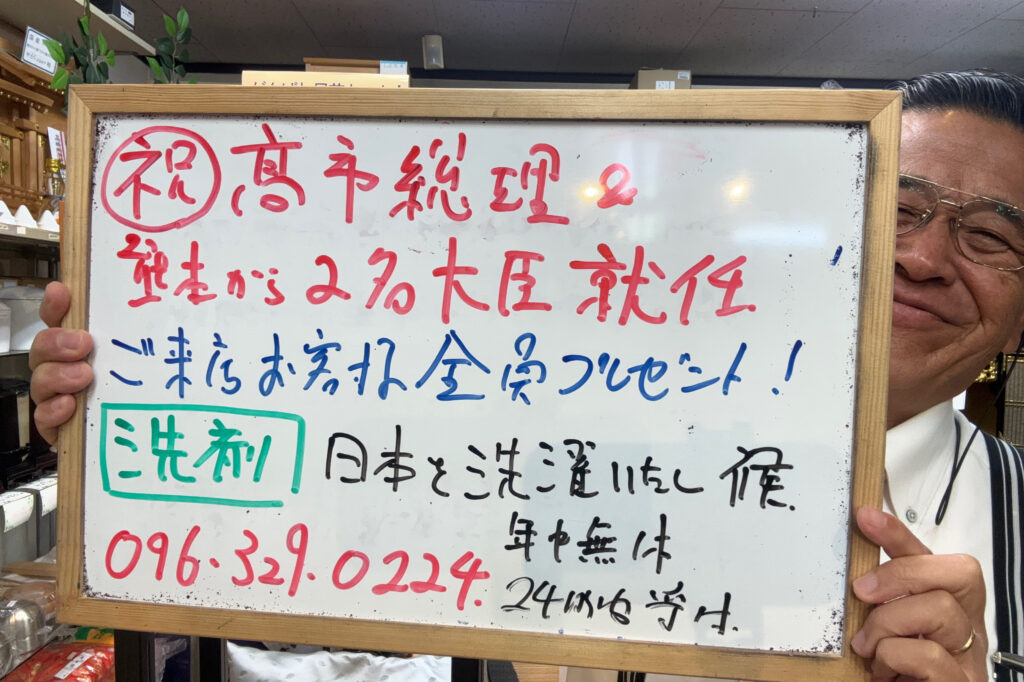 ㊗高市総理&
熊本から2名大臣就任
ご来店お客様全員プレゼント!
洗剤 日本を洗濯いたし候.
096.329.0224.
年中無休
24時間受付.